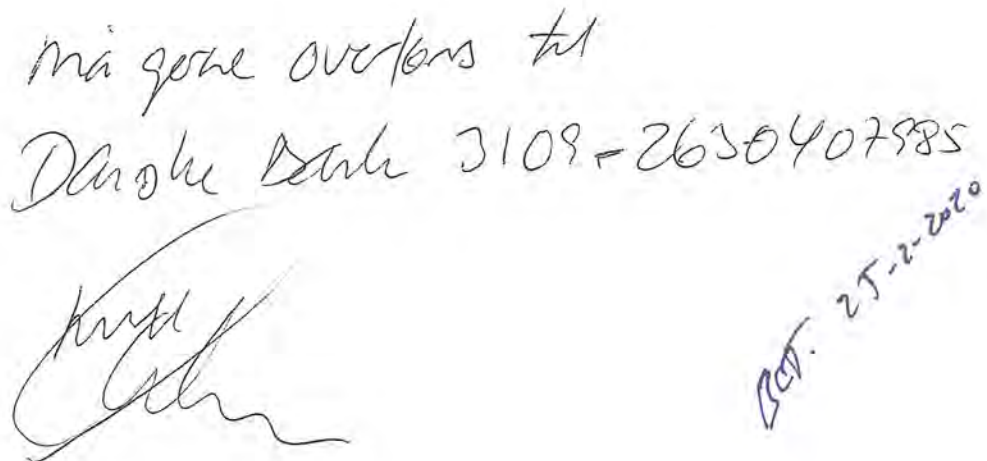 må gerne overføres til
Danske Bank 3109-2630407985
Knud
BET. 25-2-2020